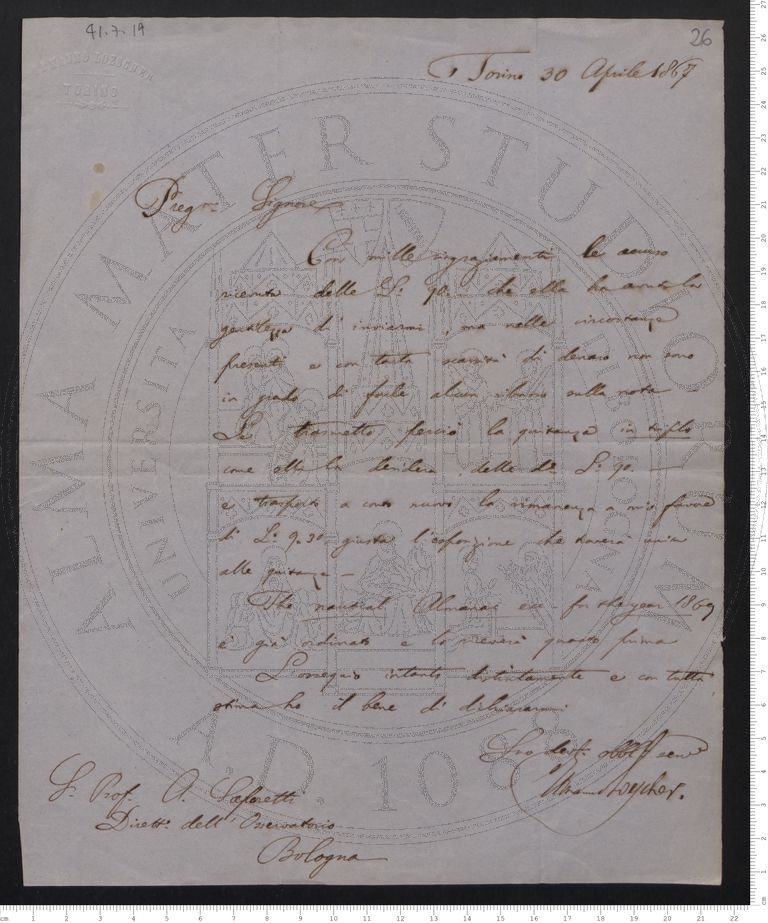 41.7.19
26
TORINO
Torino 30 Aprile 1867
Pregmo Signore
Con mille ringraziamenti le accuso
ricevuta delle L. 90 che ella ha avuto la
gentilezza d'inviarmi, ma nelle circostanze
presenti e con tanta scarsità di denaro non sono
in grado di farle alcun ribasso sulla nota
Le trasmetto perciò la quitanza in triplo
come ella la desidera, delle de L. 90. —
e trasporto a conto nuovo la rimanenza a mio favore
di L. 9.30 giusta l'esposizione che troverà unia
alle quitanze —
The nautical Almanac ecc - for the year 1869
è già ordinato e lo riceverà quanto prima
L'ossequio intanto distintamente e con tutta
stima ho il bene di dichiararmi
Suo
S. Prof. A. Saporetti
Dirett. dell'Osservatorio
Bologna
ALMA MATER STUDIORUM
UNIVERSITA
A.D. 1088